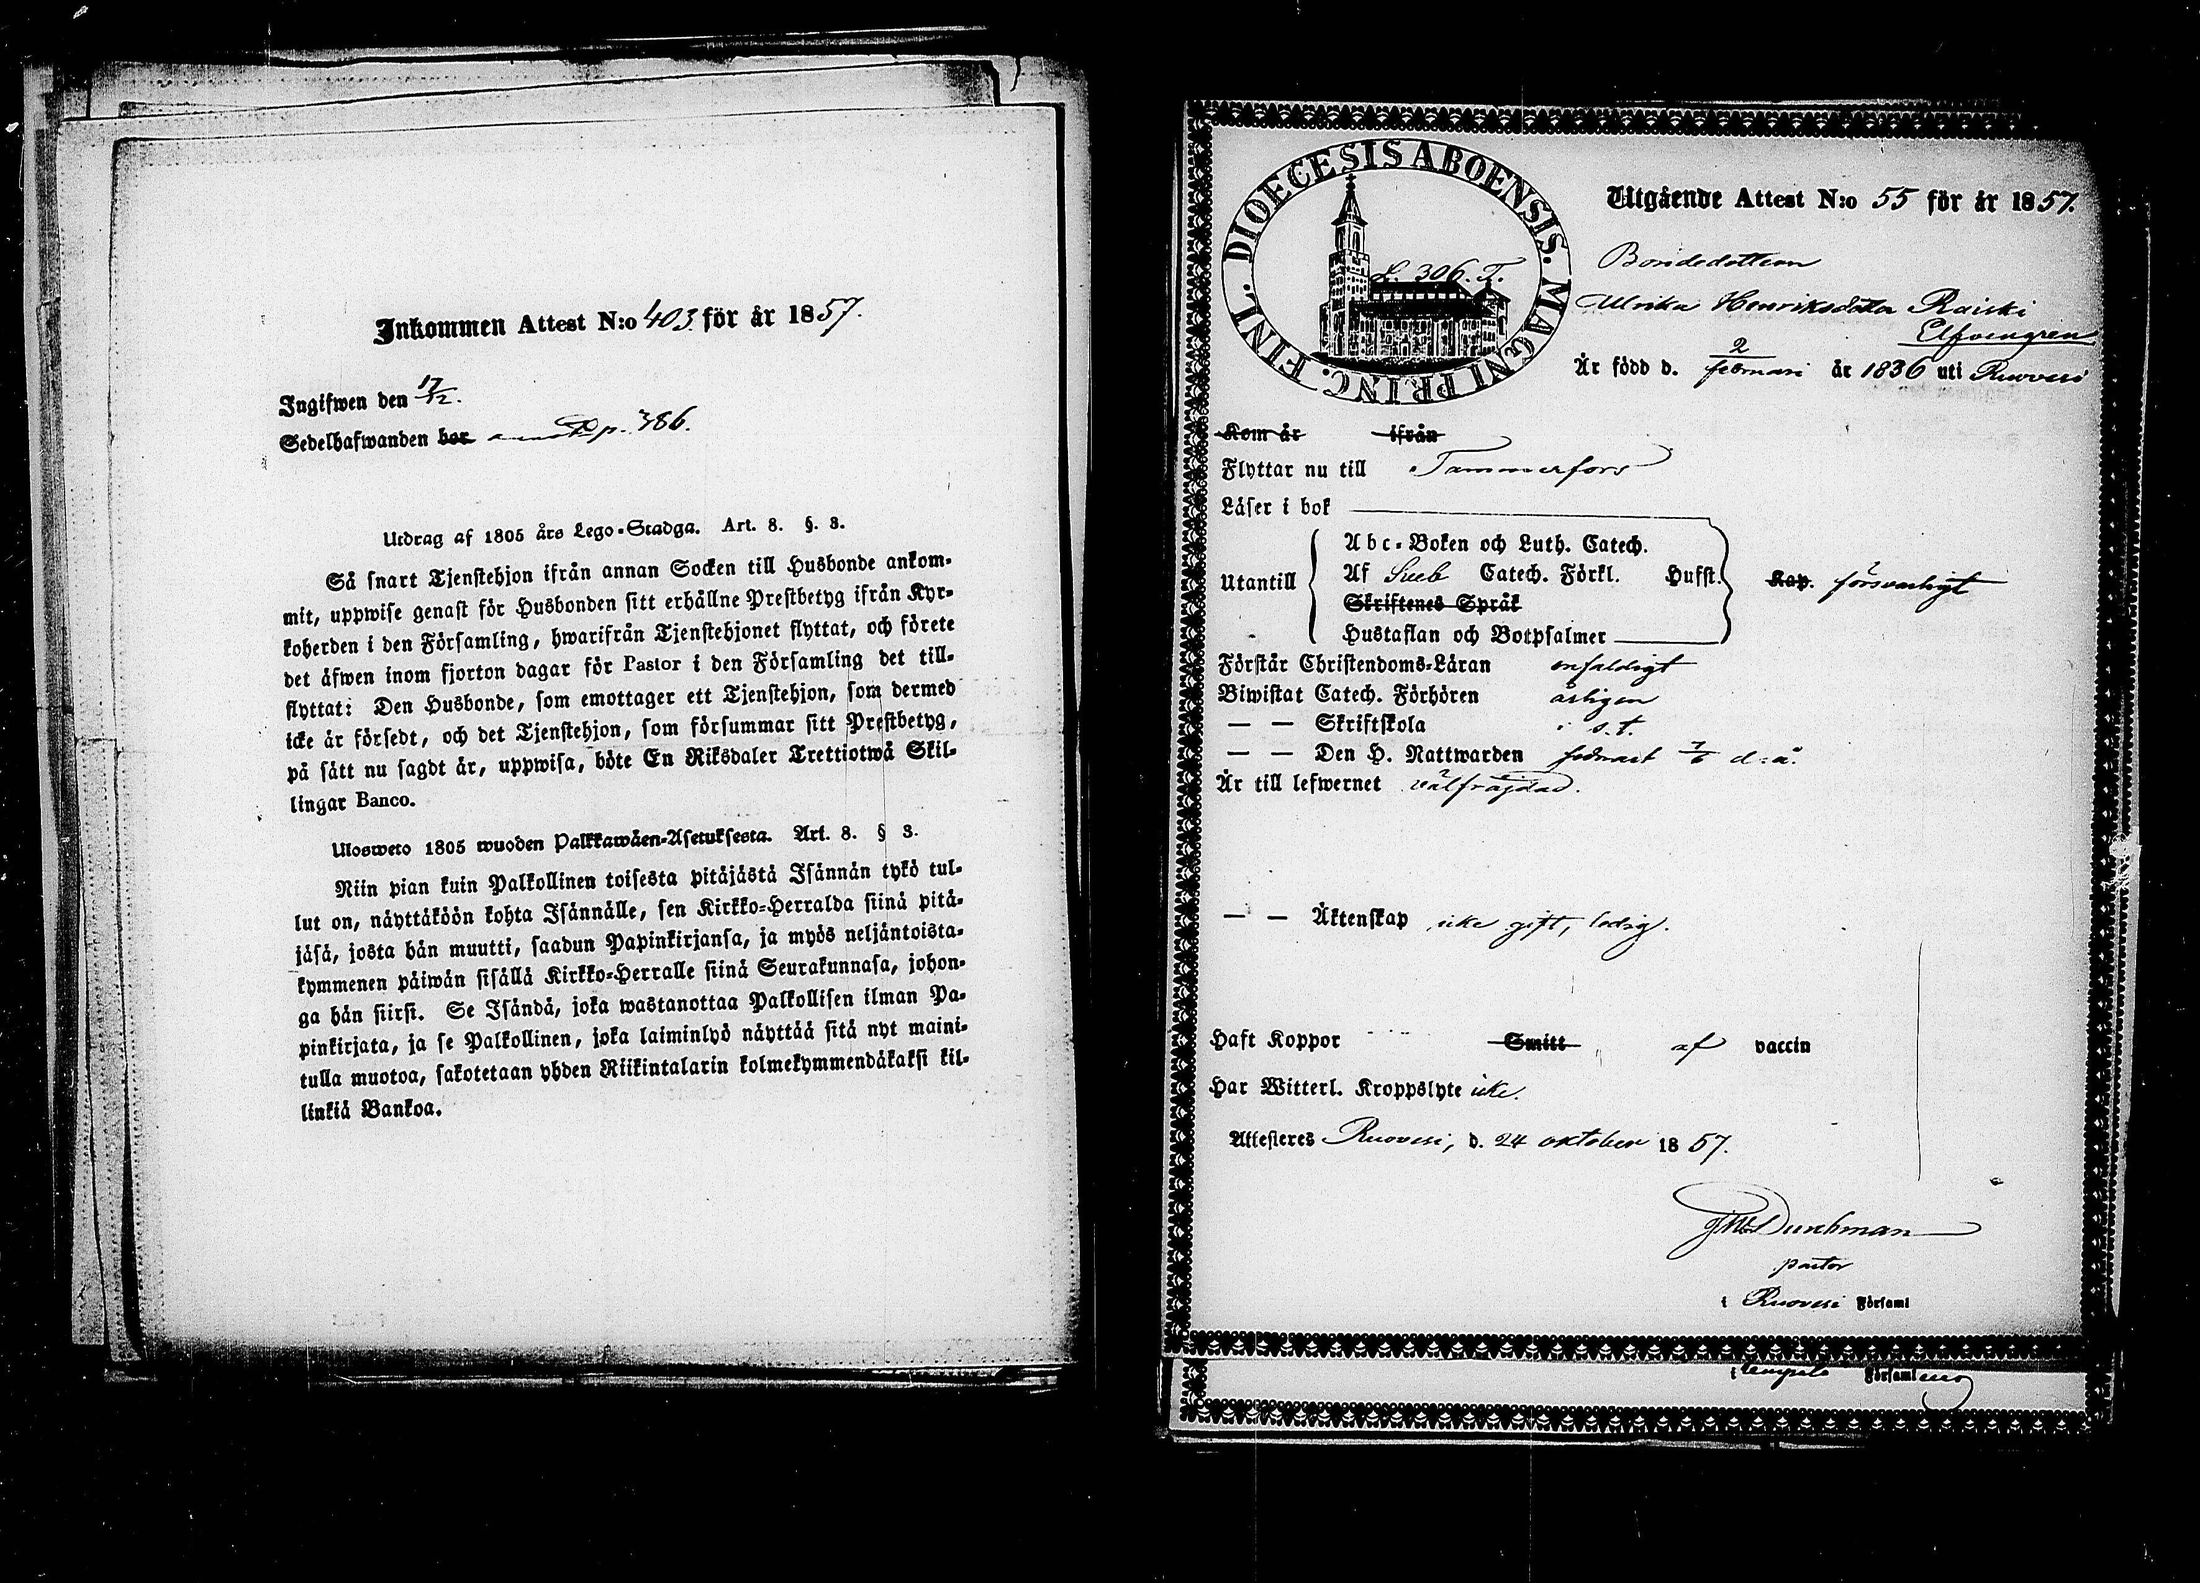 Inkommen Attest N:o 403 för år 1857.
Ingifwen den 17/12.
Sedelhafwanden bor p. 386.
Utdrag af 1805 års Lego-Stadga. Art. 8. §. 3.
Så snart Tjenstehjon ifrån annan Socken till Husbonde ankom-
mit, uppwise genast för Husbonden sitt erhållne Prestbetyg ifrån Kyr-
koherden i den Församling, hwarifrån Tjenstehjonet flyttat, och förete
det äfwen inom fjorton dagar för Pastor i den Församling det till-
flyttat: Den Husbonde, som emottager ett Tjenstehjon, som dermed
icke är försedt, och det Tjenstehjon, som försummar sitt Prestbetyg,
på sätt nu sagdt är, uppwisa, böte En Riksdaler Trettiotwå Skil-
lingar Banco.
Ulosweto 1805 wuoden Palkkawäen-Asetuksesta. Art. 8. § 3.
Niin pian kuin Palkollinen toisesta pitäjästä Isännän tykö tul-
lut on, näyttäköön kohta Isännälle, sen Kirkko-Herralda siinä pitä-
jäsä, josta hän muutti, saadun Papinkirjansa, ja myös neljäntoista-
kymmenen päiwän sisällä Kirkko-Herralle siinä Seurakunnasa, johon-
ga hän siirsi. Se Isändä, joka wastanottaa Palkollisen ilman Pa-
pinkirjata, ja se Palkollinen, joka laiminlyö näyttää sitä nyt maini-
tulla muotoa, sakotetaan yhden Riikintalarin kolmekymmendäkaksi kil-
linkiä Bankoa.
DIOECESIS ABOENSIS. MAGNI PRINC. FINL.
L. 306. T.
Utgående Attest N:o 55 för år 1857.
Bondedottren
Ulrika Henriksdotter Raiski
Elfvengren
Är född d. 2 februari år 1836 uti Ruovesi
Kom år ifrån
Flyttar nu till Tammerfors
Läser i bok
Utantill
Abc-Boken och Luth. Catech.
Af Sveb Catech. Förkl. Husst. Kap. försvarligt
Skriftenes Språk
Hustaflan och Botpsalmer
Förstår Christendoms-Läran enfaldigt
Biwistat Catech. Förhören årligen
— — Skriftskola i s. t.
— — Den H. Nattwarden sednast 7/6 d. å.
Är till lefwernet välfrägdad.
— — Äktenskap icke gift, ledig.
Haft Koppor Smitt af vaccin
Har Witterl. Kroppslyte icke.
Attesteres Ruovesi, d. 24 oktober 1857.
Durchman
pastor
i Ruovesi Församl
i Församling